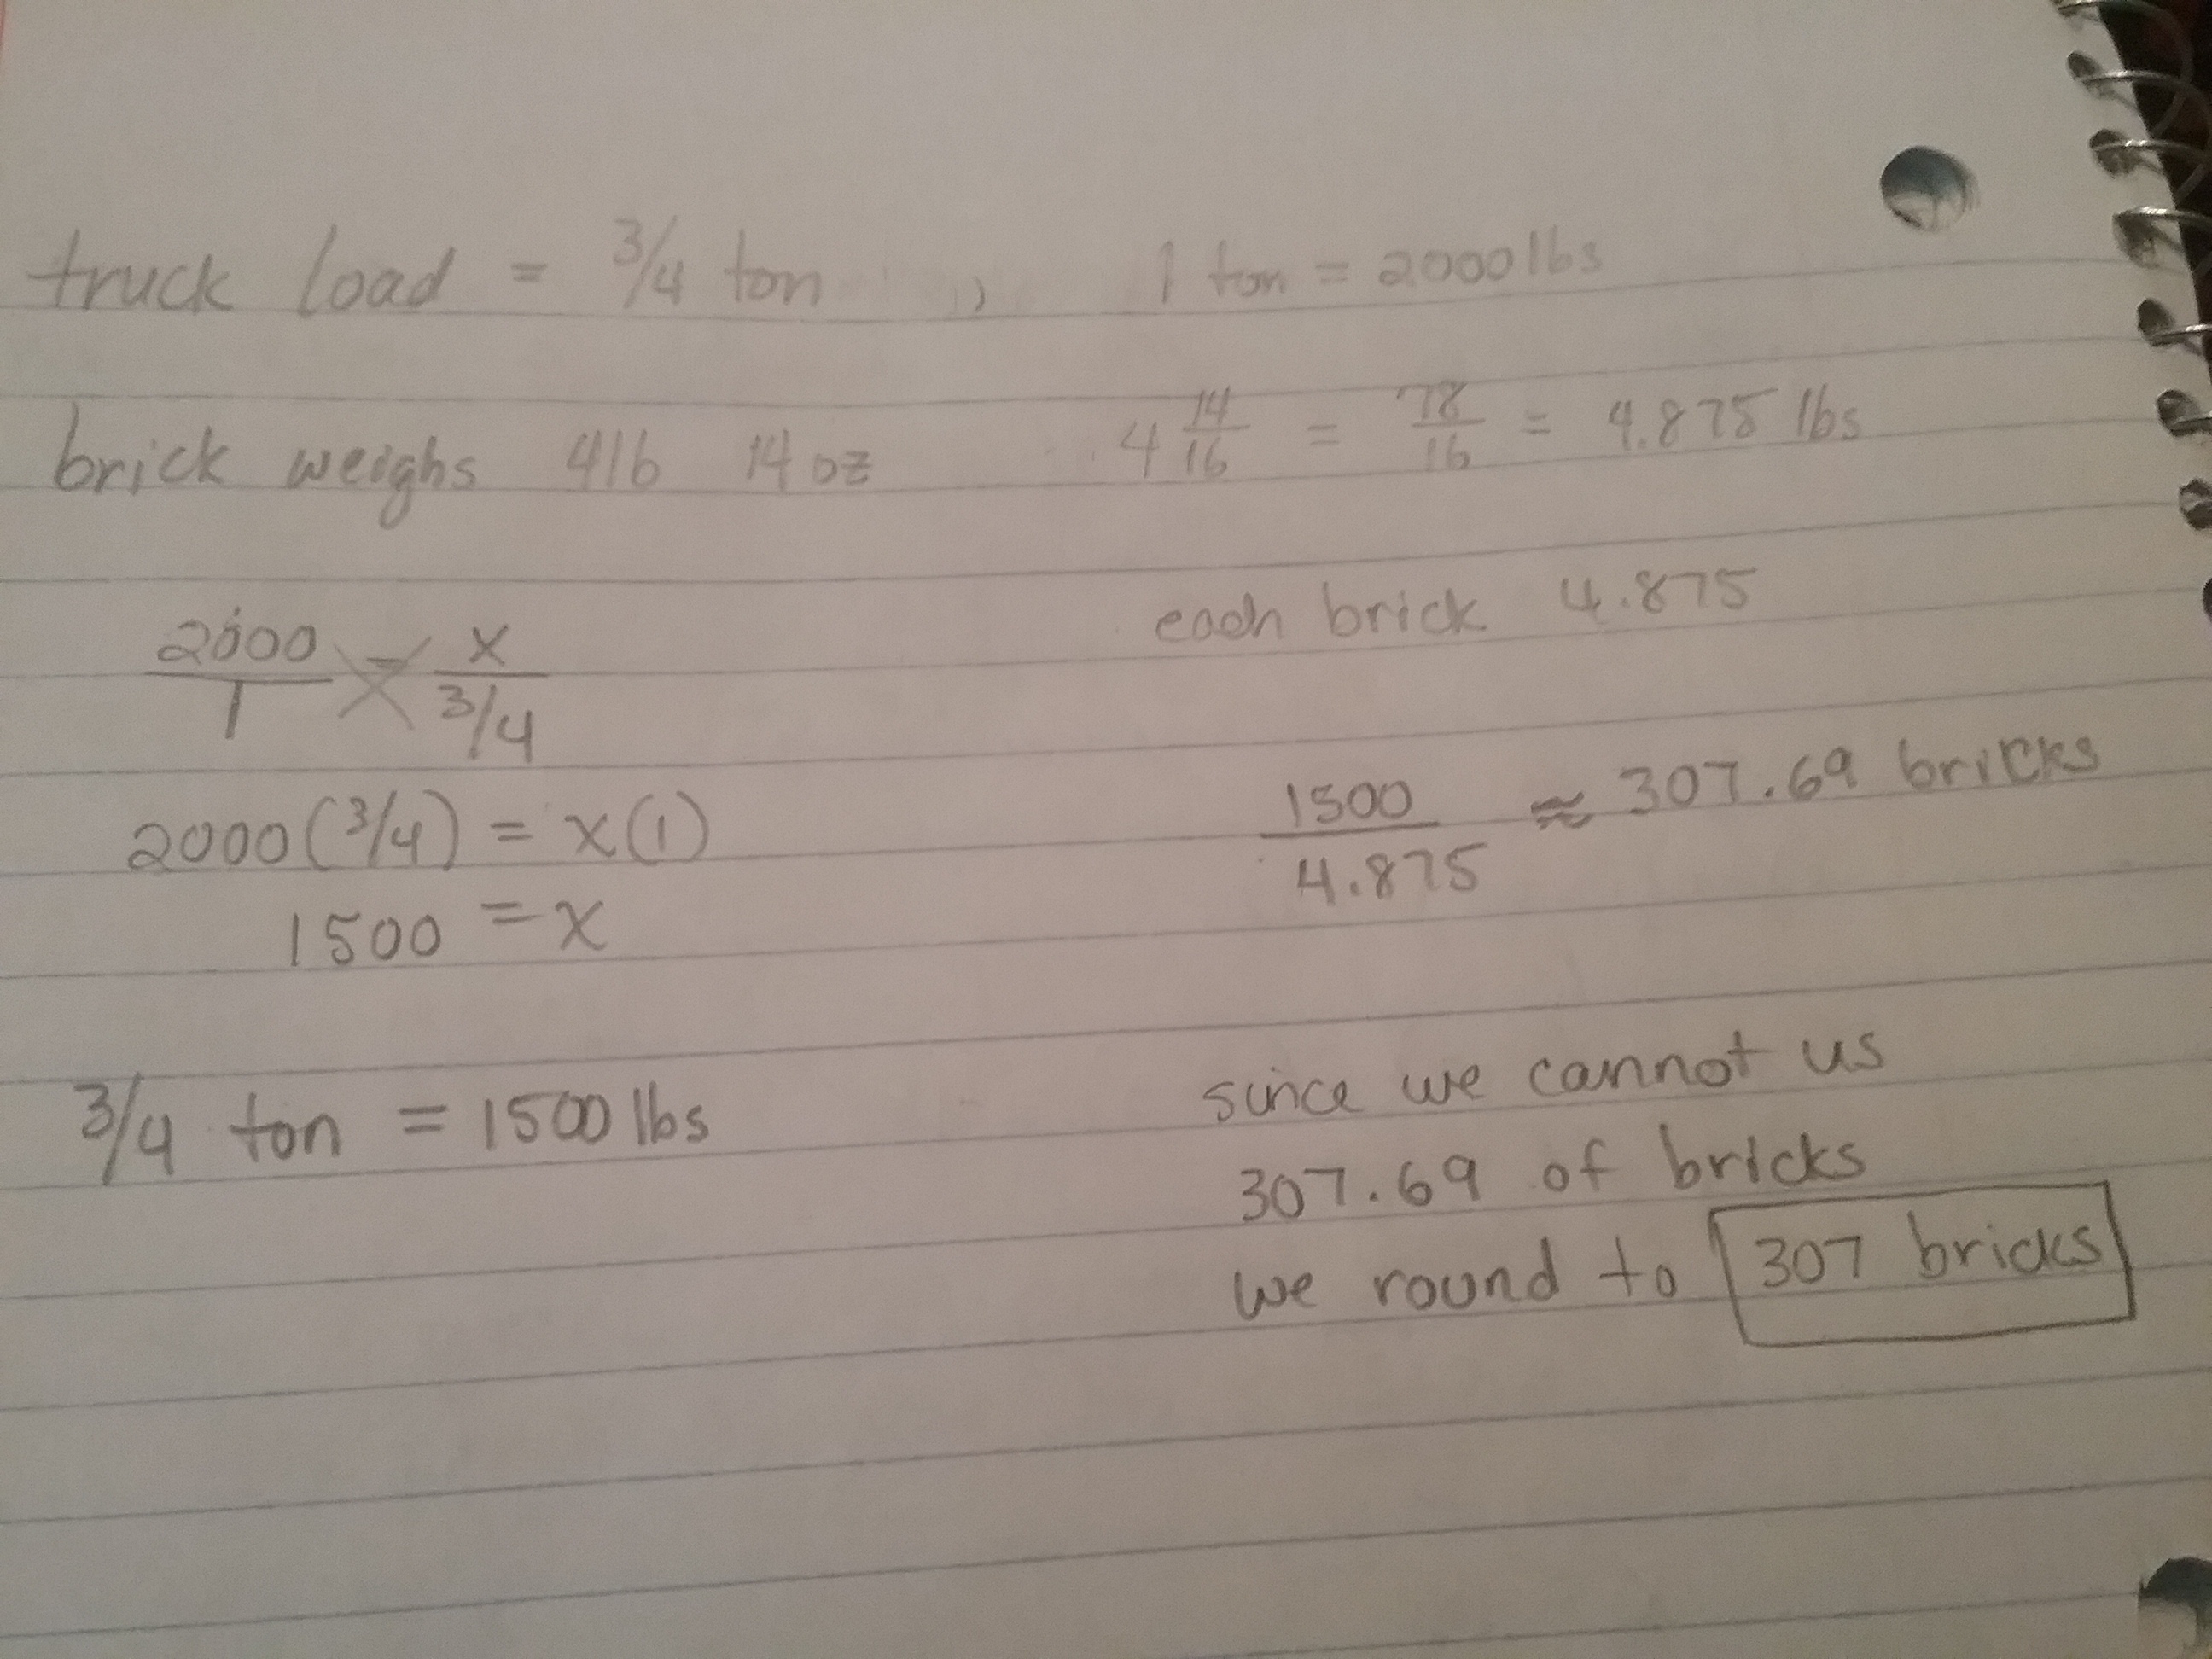 truck load = 3/4 ton , 1 ton = 2000 lbs
brick weighs 4lb 14 oz 4 14/16 = 78/16 = 4.875 lbs
2000/1 = x/3/4
2000(3/4) = x(1)
1500 = x
3/4 ton = 1500 lbs
each brick 4.875
1500/4.875 ≈ 307.69 bricks
since we cannot us
307.69 of bricks
we round to 307 bricks